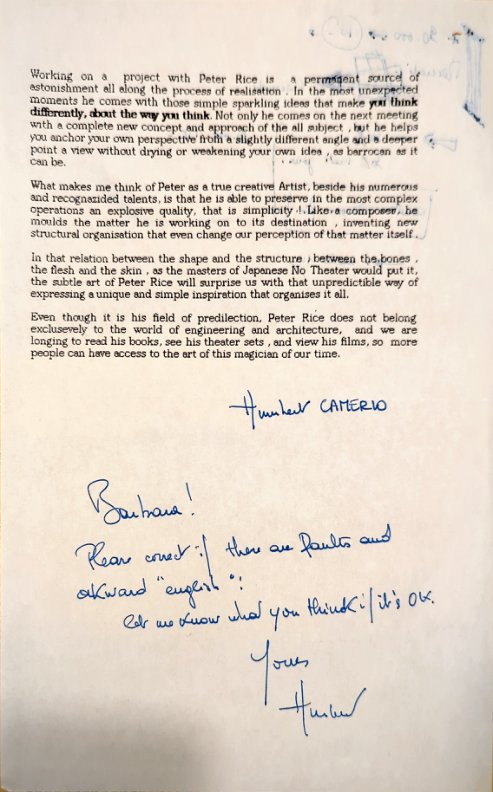 Working on a project with Peter Rice is a permanent source of
astonishment all along the process of realisation . In the most unexpected
moments he comes with those simple sparkling ideas that make you think
differently, about the way you think. Not only he comes on the next meeting
with a complete new concept and approach of the all subject , but he helps
you anchor your own perspective from a slightly different angle and a deeper
point a view without drying or weakening your own idea , as barrocan as it
can be.
What makes me think of Peter as a true creative Artist, beside his numerous
and recognazided talents, is that he is able to preserve in the most complex
operations an explosive quality, that is simplicity ! Like a composer, he
moulds the matter he is working on to its destination , inventing new
structural organisation that even change our perception of that matter itself .
In that relation between the shape and the structure , between the bones ,
the flesh and the skin , as the masters of Japanese No Theater would put it,
the subtle art of Peter Rice will surprise us with that unpredictible way of
expressing a unique and simple inspiration that organises it all.
Even though it is his field of predilection, Peter Rice does not belong
exclusevely to the world of engineering and architecture, and we are
longing to read his books, see his theater sets , and view his films, so more
people can have access to the art of this magician of our time.
Humbert CAMERLO
Barbara!
Please correct if there are faults and
akward "english"!
let me know what you think if it's OK.
Yours
Humbert